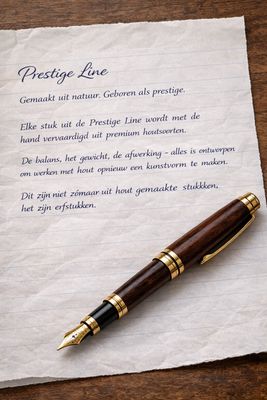 Prestige Line
Gemaakt uit natuur. Geboren als prestige.
Elke stuk uit de Prestige Line wordt met de
hand vervaardigd uit premium houtsoorten.
De balans, het gewicht, de afwerking – alles is ontworpen
om werken met hout opnieuw een kunstvorm te maken.
Dit zijn niet zómaar uit hout gemaakte stukkken,
het zijn erfstukken.